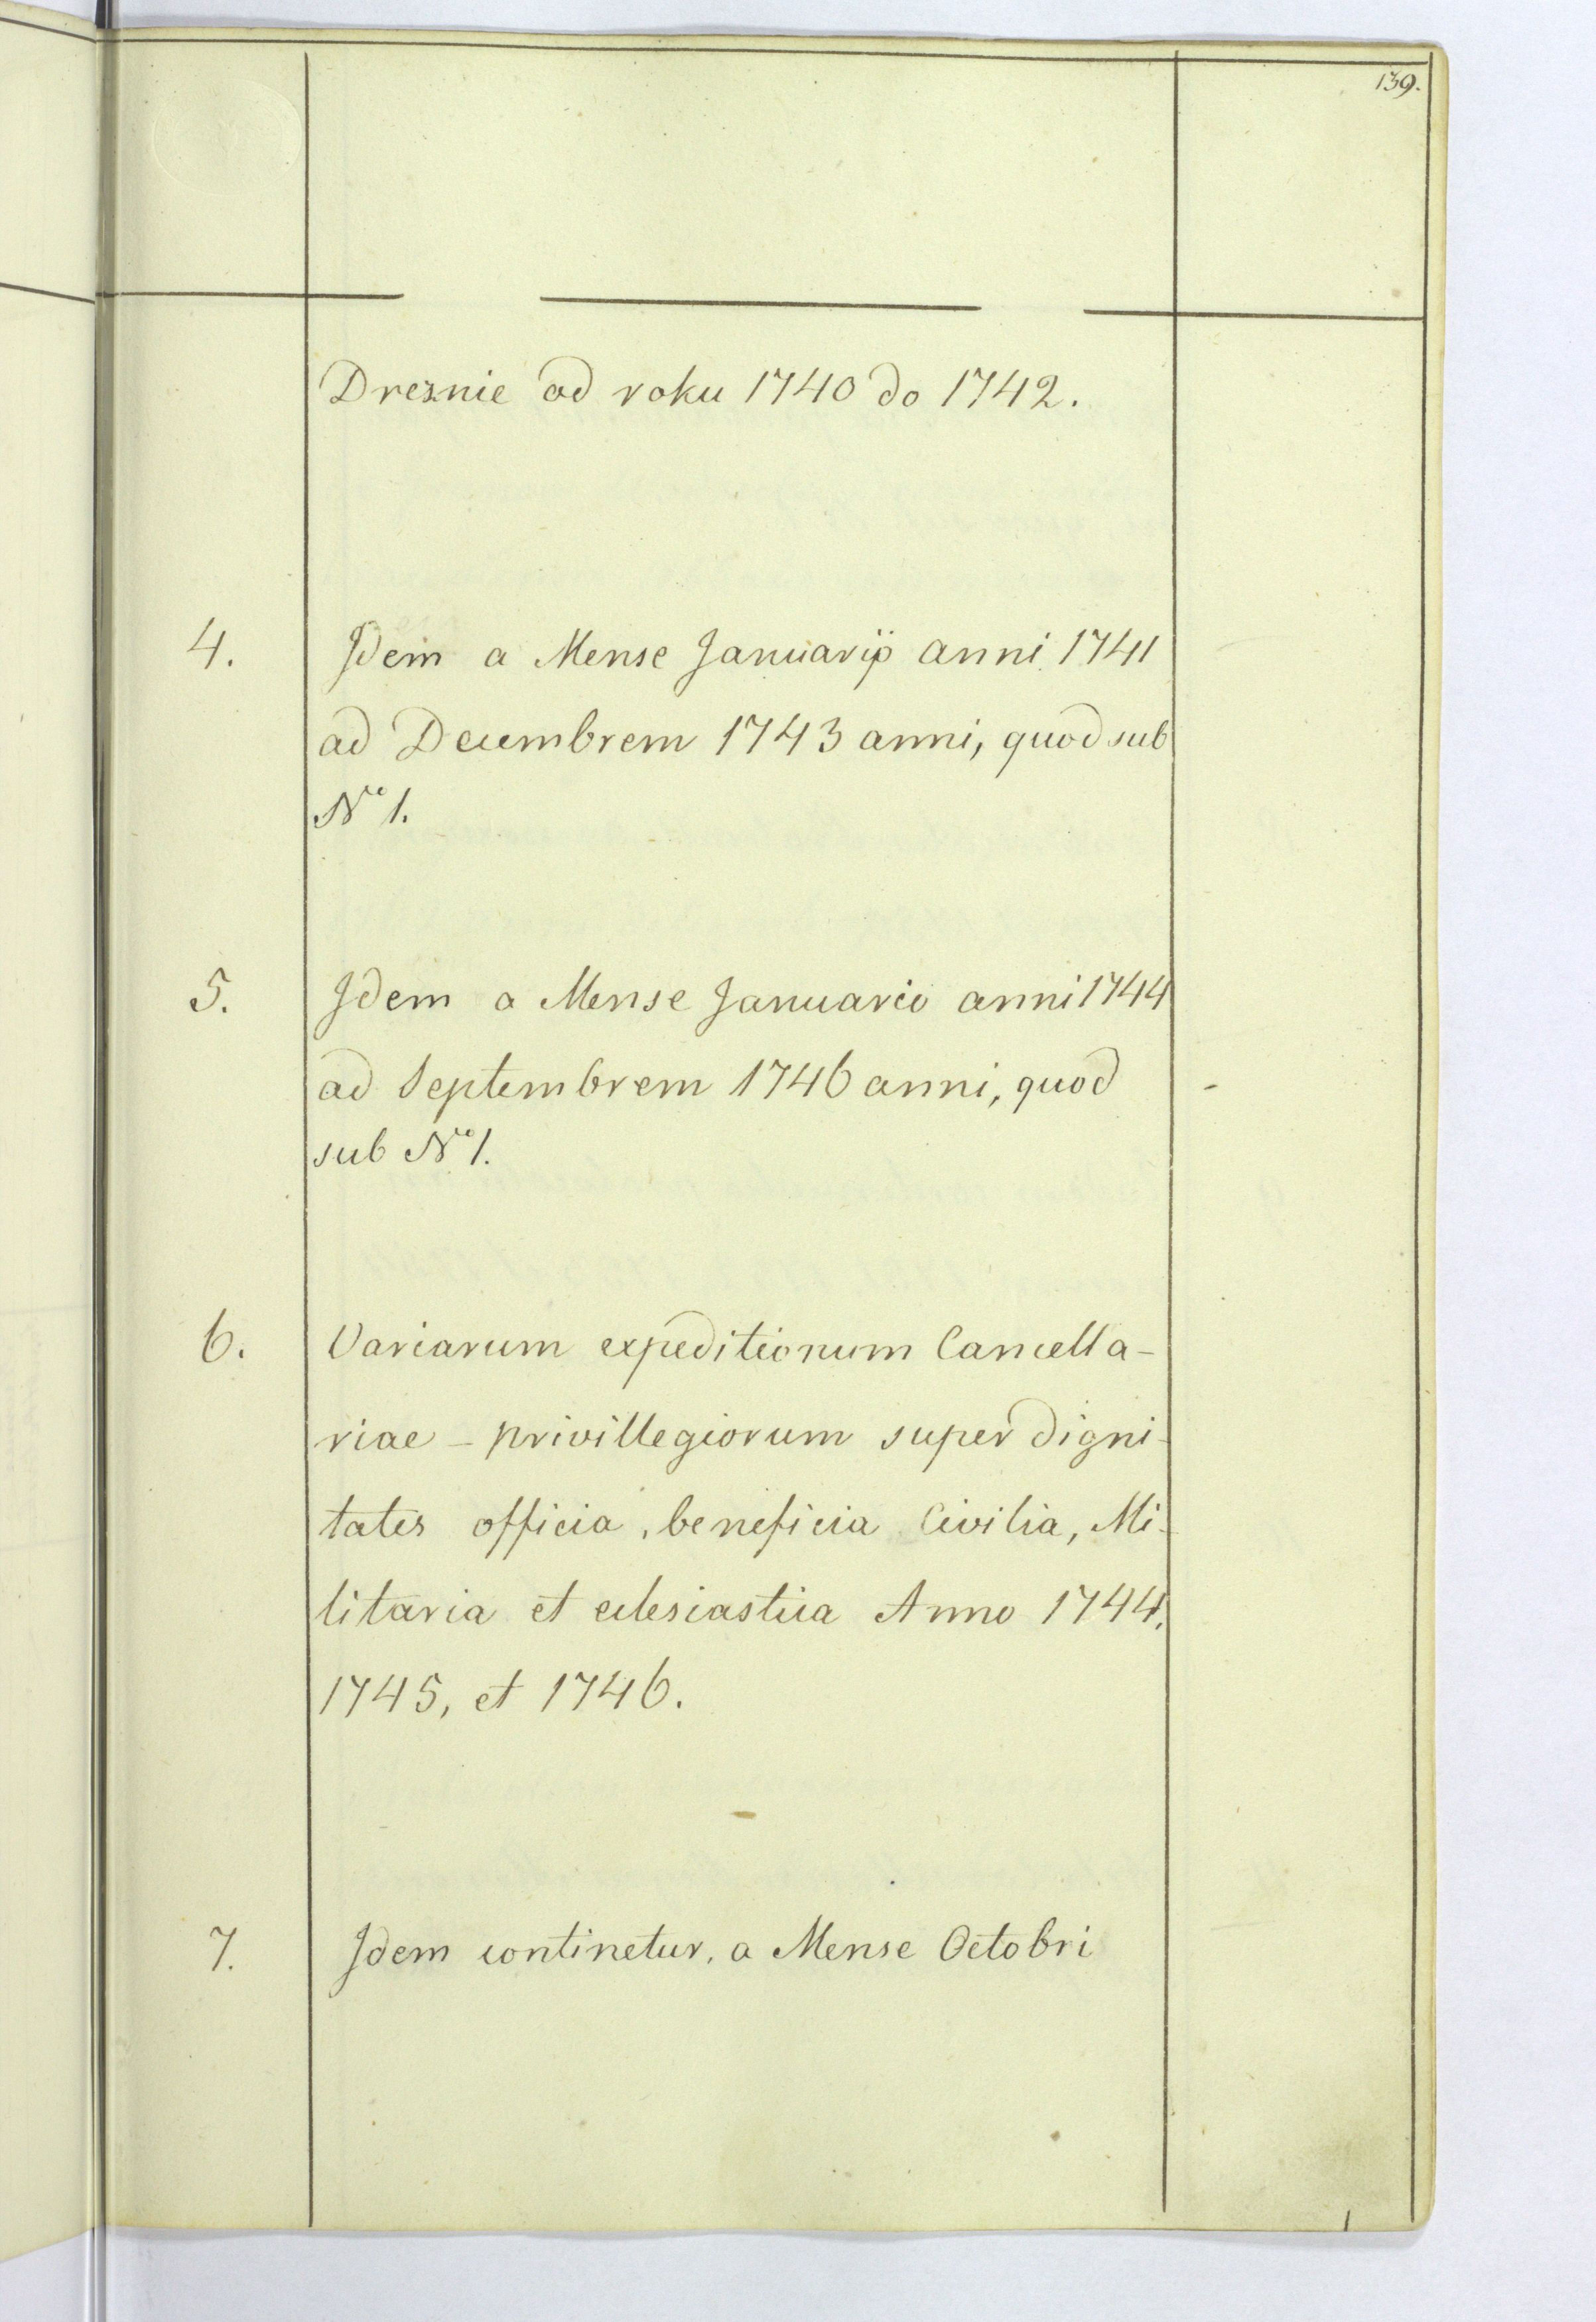 139.
Dreznie od roku 1740 do 1742.
4. Idem a Mense Januarij anni 1741
ad Decembrem 1743 anni, quod sub
No 1.
5. Idem a Mense Januario anni 1744
ad Septembrem 1746 anni, quod
sub No 1.
6. Variarum expeditionum Cancella-
riae - privillegiorum super digni-
tates officia, beneficia Civilia, Mi-
litaria et eclesiastica Anno 1744.
1745, et 1746.
7. Idem continetur, a Mense Octobri